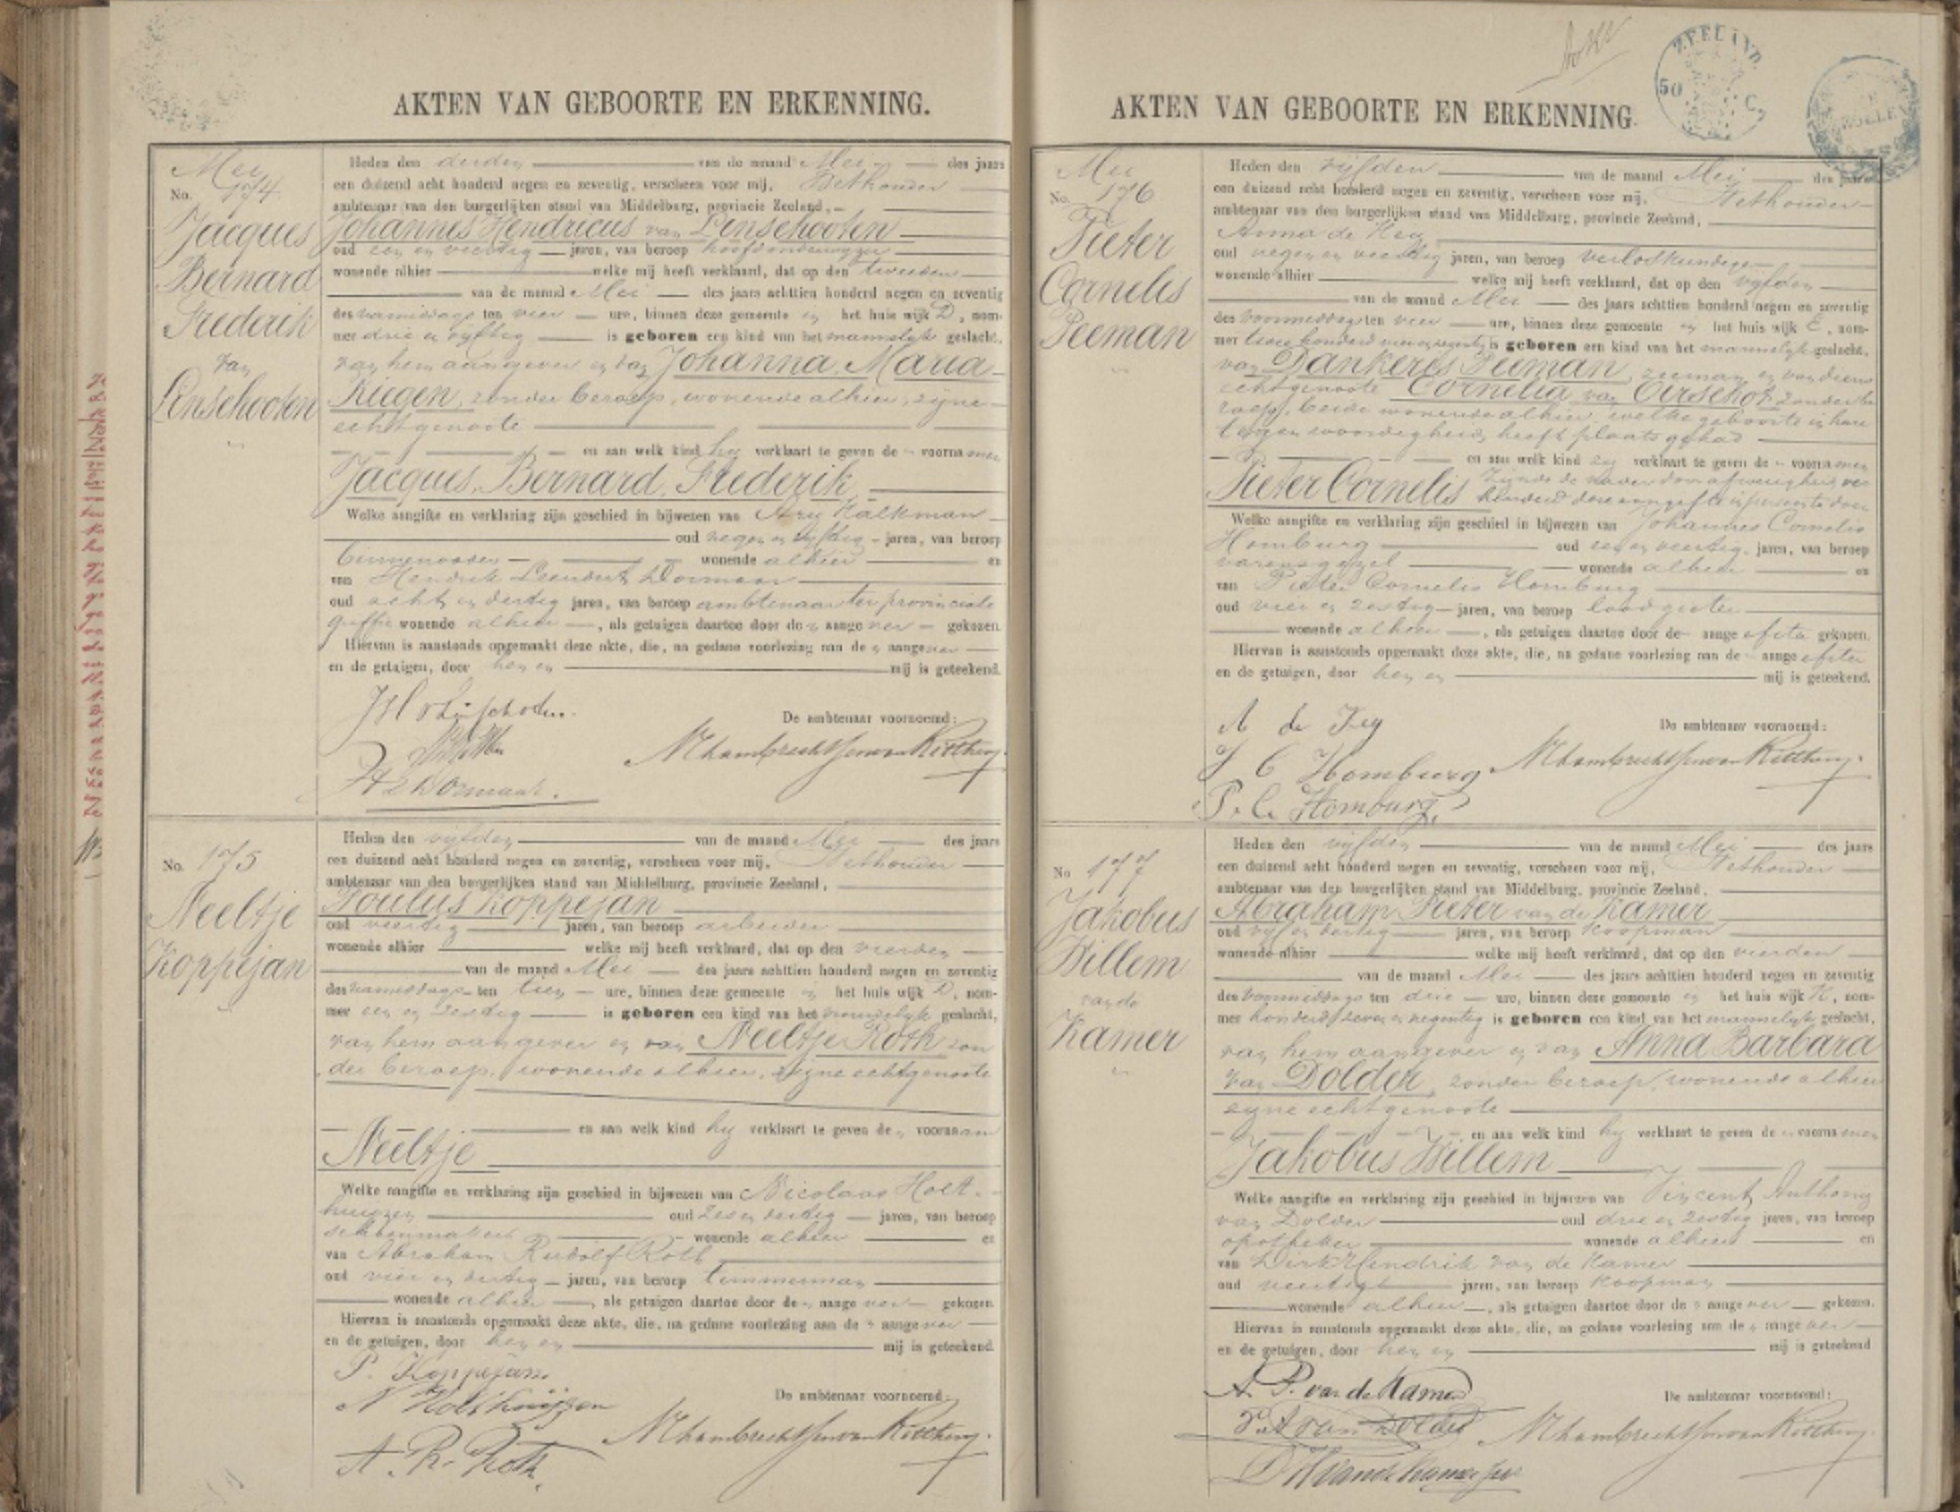 AKTEN VAN GEBOORTE EN ERKENNING.
Mei
No. 174
Jacques
Bernard
Frederik
van
Lenschooten
Heden den derden van de maand Mei des jaars
een duizend acht honderd negen en zeventig, verscheen voor mij, Wethouder
ambtenaar van den burgerlijken stand van Middelburg, provincie Zeeland,
Johannes Hendricus van Lenschooten
oud een en veertig jaren, van beroep hoofdonderwyzer
wonende alhier welke mij heeft verklaard, dat op den tweeden
van de maand Mei des jaars achttien honderd negen en zeventig
des namiddags ten vier ure, binnen deze gemeente in het huis wijk D, nom-
mer drie en vyftig is geboren een kind van het mannelyk geslacht,
van hem aangever en van Johanna Maria
Riegen, zonder beroep, wonende alhier, zyne
echtgenoote
en aan welk kind hy verklaart te geven de voornamen
Jacques, Bernard, Frederik
Welke aangifte en verklaring zijn geschied in bijwezen van Arij Kalkman
oud negen en vyftig jaren, van beroep
wonende alhier en
van Hendrik Leendert Dormaar
oud acht en dertig jaren, van beroep ambtenaar ter provinciale
griffie wonende alhier, als getuigen daartoe door den aangever gekozen.
Hiervan is aanstonds opgemaakt deze akte, die, na gedane voorlezing aan den aangever
en de getuigen, door hen en mij is geteekend.
De ambtenaar voornoemd:
H L Dormaar.
No. 175
Neeltje
Koppejan
Heden den vijfden van de maand Mei des jaars
een duizend acht honderd negen en zeventig, verscheen voor mij, Wethouder
ambtenaar van den burgerlijken stand van Middelburg, provincie Zeeland,
Poulus Koppejan
oud veertig jaren, van beroep arbeider
wonende alhier welke mij heeft verklaard, dat op den vierden
van de maand Mei des jaars achttien honderd negen en zeventig
des namiddags ten tien ure, binnen deze gemeente in het huis wijk D, nom-
mer een en zestig is geboren een kind van het vrouwelyk geslacht,
van hem aangever en van Neeltje Roth zon
der beroep, wonende alhier, zyne echtgenoote
en aan welk kind hy verklaart te geven den voornaam
Neeltje
Welke aangifte en verklaring zijn geschied in bijwezen van Nicolaas Holt-
huijzen oud zes en dertig jaren, van beroep
wonende alhier en
van Abraham Rudolf Roth
oud vier en dertig jaren, van beroep timmerman
wonende alhier, als getuigen daartoe door den aangever gekozen.
Hiervan is aanstonds opgemaakt deze akte, die, na gedane voorlezing aan den aangever
en de getuigen, door hen en mij is geteekend.
P. Koppejan
De ambtenaar voornoemd:
N Holthuijzen
A. R. Roth.
AKTEN VAN GEBOORTE EN ERKENNING.
ZEELAND
50 C.
Mei
No. 176
Pieter
Cornelis
Peeman
Heden den vijfden van de maand Mei des jaars
een duizend acht honderd negen en zeventig, verscheen voor mij, Wethouder
ambtenaar van den burgerlijken stand van Middelburg, provincie Zeeland,
Anna de Hey
oud negen en veertig jaren, van beroep verloskundige
wonende alhier welke mij heeft verklaard, dat op den vijfden
van de maand Mei des jaars achttien honderd negen en zeventig
des voormiddags ten vier ure, binnen deze gemeente in het huis wijk E, nom-
mer is geboren een kind van het mannelyk geslacht,
van Dankeres Peeman, zeeman, en van diens
echtgenoote Cornelia van Oirschot, zonder be
roep, beide wonende alhier, welke geboorte in hare
tegenwoordigheid heeft plaats gehad
en aan welk kind zy verklaart te geven de voornamen
Pieter Cornelis
Welke aangifte en verklaring zijn geschied in bijwezen van Johannes Cornelis
Homburg oud een en veertig jaren, van beroep
varensgezel wonende alhier en
van Pieter Cornelis Homburg
oud vier en zestig jaren, van beroep loodgieter
wonende alhier, als getuigen daartoe door de aangeefster gekozen.
Hiervan is aanstonds opgemaakt deze akte, die, na gedane voorlezing aan de aangeefster
en de getuigen, door hen en mij is geteekend.
De ambtenaar voornoemd:
J C Homburg
P. C. Homburg
No 177
Jakobus
Willem
van de
Kamer
Heden den vijfden van de maand Mei des jaars
een duizend acht honderd negen en zeventig, verscheen voor mij, Wethouder
ambtenaar van den burgerlijken stand van Middelburg, provincie Zeeland,
Abraham Pieter van de Kamer
oud vijf en dertig jaren, van beroep koopman
wonende alhier welke mij heeft verklaard, dat op den vierden
van de maand Mei des jaars achttien honderd negen en zeventig
des voormiddags ten drie ure, binnen deze gemeente in het huis wijk K, nom-
mer honderd zeven en negentig is geboren een kind van het mannelyk geslacht,
van hem aangever en van Anna Barbara
van Dolder, zonder beroep, wonende alhier
zyne echtgenoote
en aan welk kind hy verklaart te geven de voornamen
Jakobus Willem
Welke aangifte en verklaring zijn geschied in bijwezen van Vincent Anthony
van Dolder oud drie en zestig jaren, van beroep
apotheker wonende alhier en
van Dirk Hendrik van de Kamer
oud veertig jaren, van beroep koopman
wonende alhier, als getuigen daartoe door den aangever gekozen.
Hiervan is aanstonds opgemaakt deze akte, die, na gedane voorlezing aan den aangever
en de getuigen, door hen en mij is geteekend
A. P. van de Kamer
De ambtenaar voornoemd:
V. A van Dolder